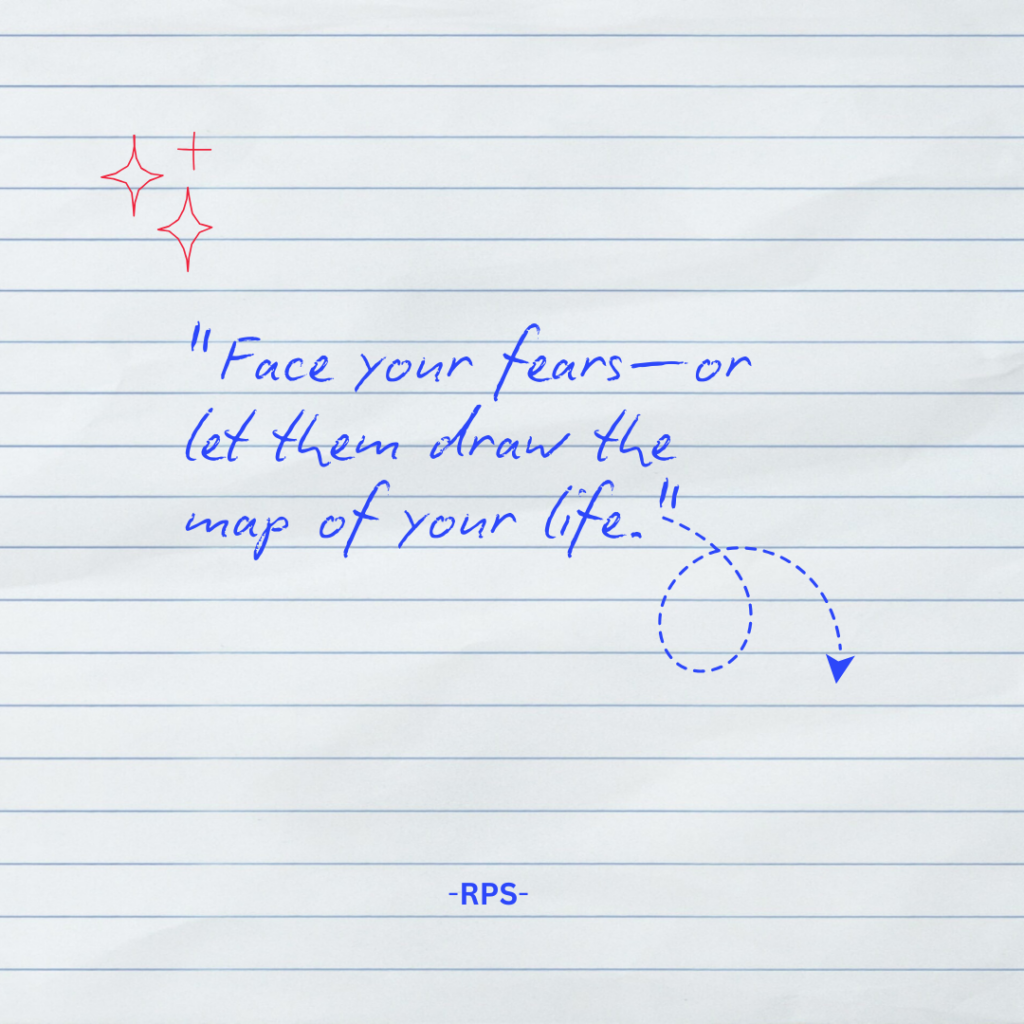 "Face your fears—or
let them draw the
map of your life."
-RPS-